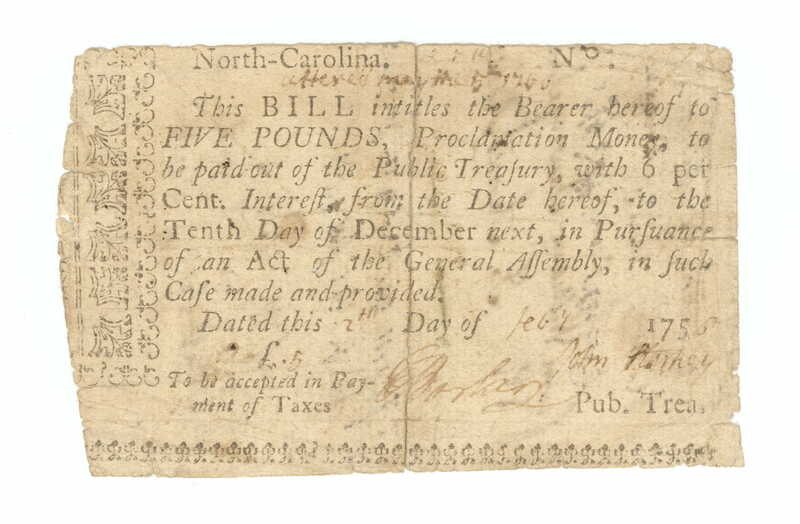 North-Carolina. No.
altered may the 5th 1760
This BILL intitles the Bearer hereof to
FIVE POUNDS, Proclamation Money, to
be paid out of the Public Treaſury, with 6 per
Cent. Intereſt, from the Date hereof, to the
Tenth Day of December next, in Purſuance
of an Act of the General Aſſembly, in ſuch
Caſe made and provided.
Dated this 2th Day of feby 1756
£.5 John Starkey
To be accepted in Pay-
ment of Taxes Pub. Trea.